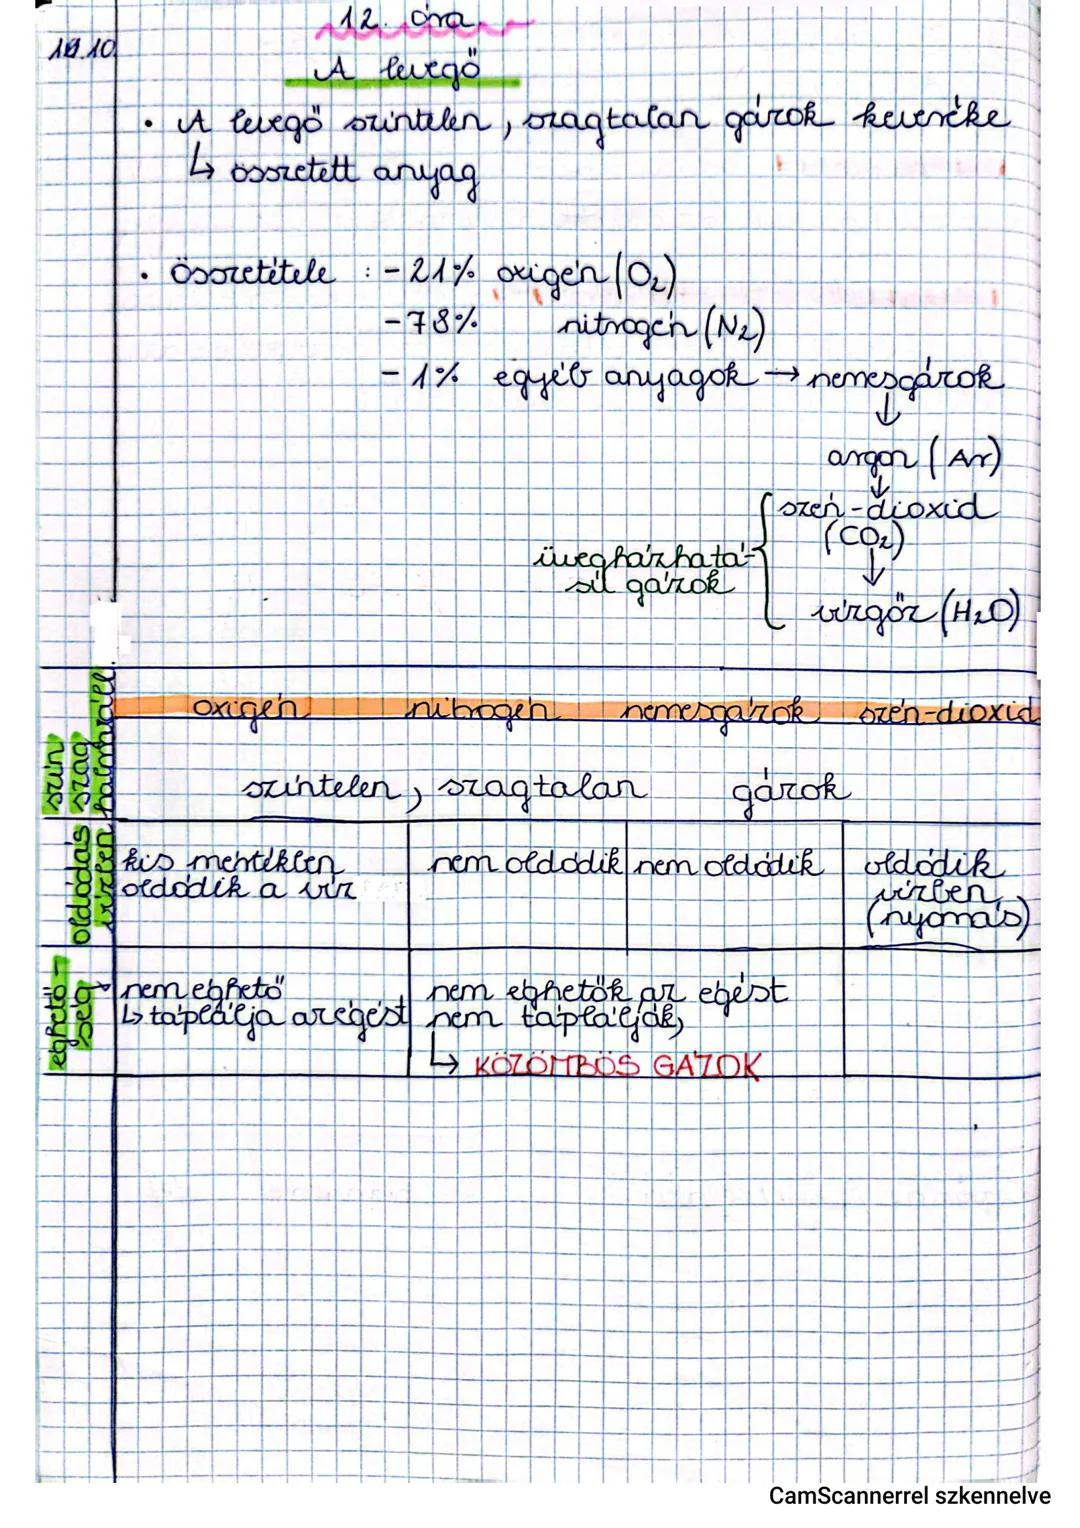 12. óra
10.10.
A levegő
• A levegő színtelen, szagtalan gázok keveréke
↳ összetett anyag
• összetétele : - 21% oxigén (O₂)
- 78% nitrogén (N₂)
- 1% egyéb anyagok → nemesgázok
↓
argon (Ar)
↓
szén-dioxid
(CO₂)
üvegházhatá-
sú gázok
↓
vízgőz (H₂O)
oxigén nitrogén nemesgázok szén-dioxid
szín
szag
halmazáll.
színtelen, szagtalan gázok
oldódás
vízben
kis mértékben
oldódik a víz
nem oldódik
nem oldódik
oldódik
vízben
(nyomás)
éghető-
ség
nem éghető
↳ táplálja az égést
nem éghetők az égést
nem táplálják,
↳ KÖZÖMBÖS GÁZOK
CamScannerrel szkennelve